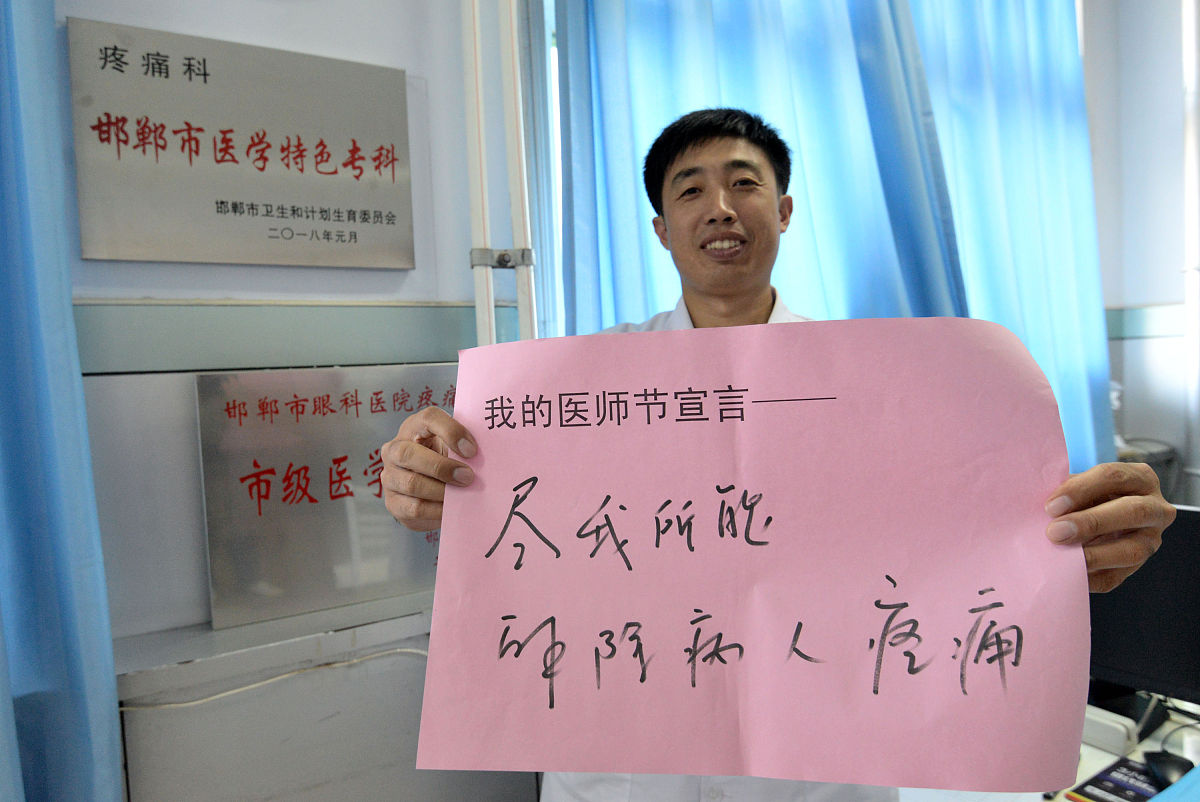 疼痛科
邯郸市医学特色专科
邯郸市卫生和计划生育委员会
二〇一八年元月
邯郸市眼科医院疼痛
市级医学
邯
我的医师节宣言——
尽我所能
解除病人疼痛